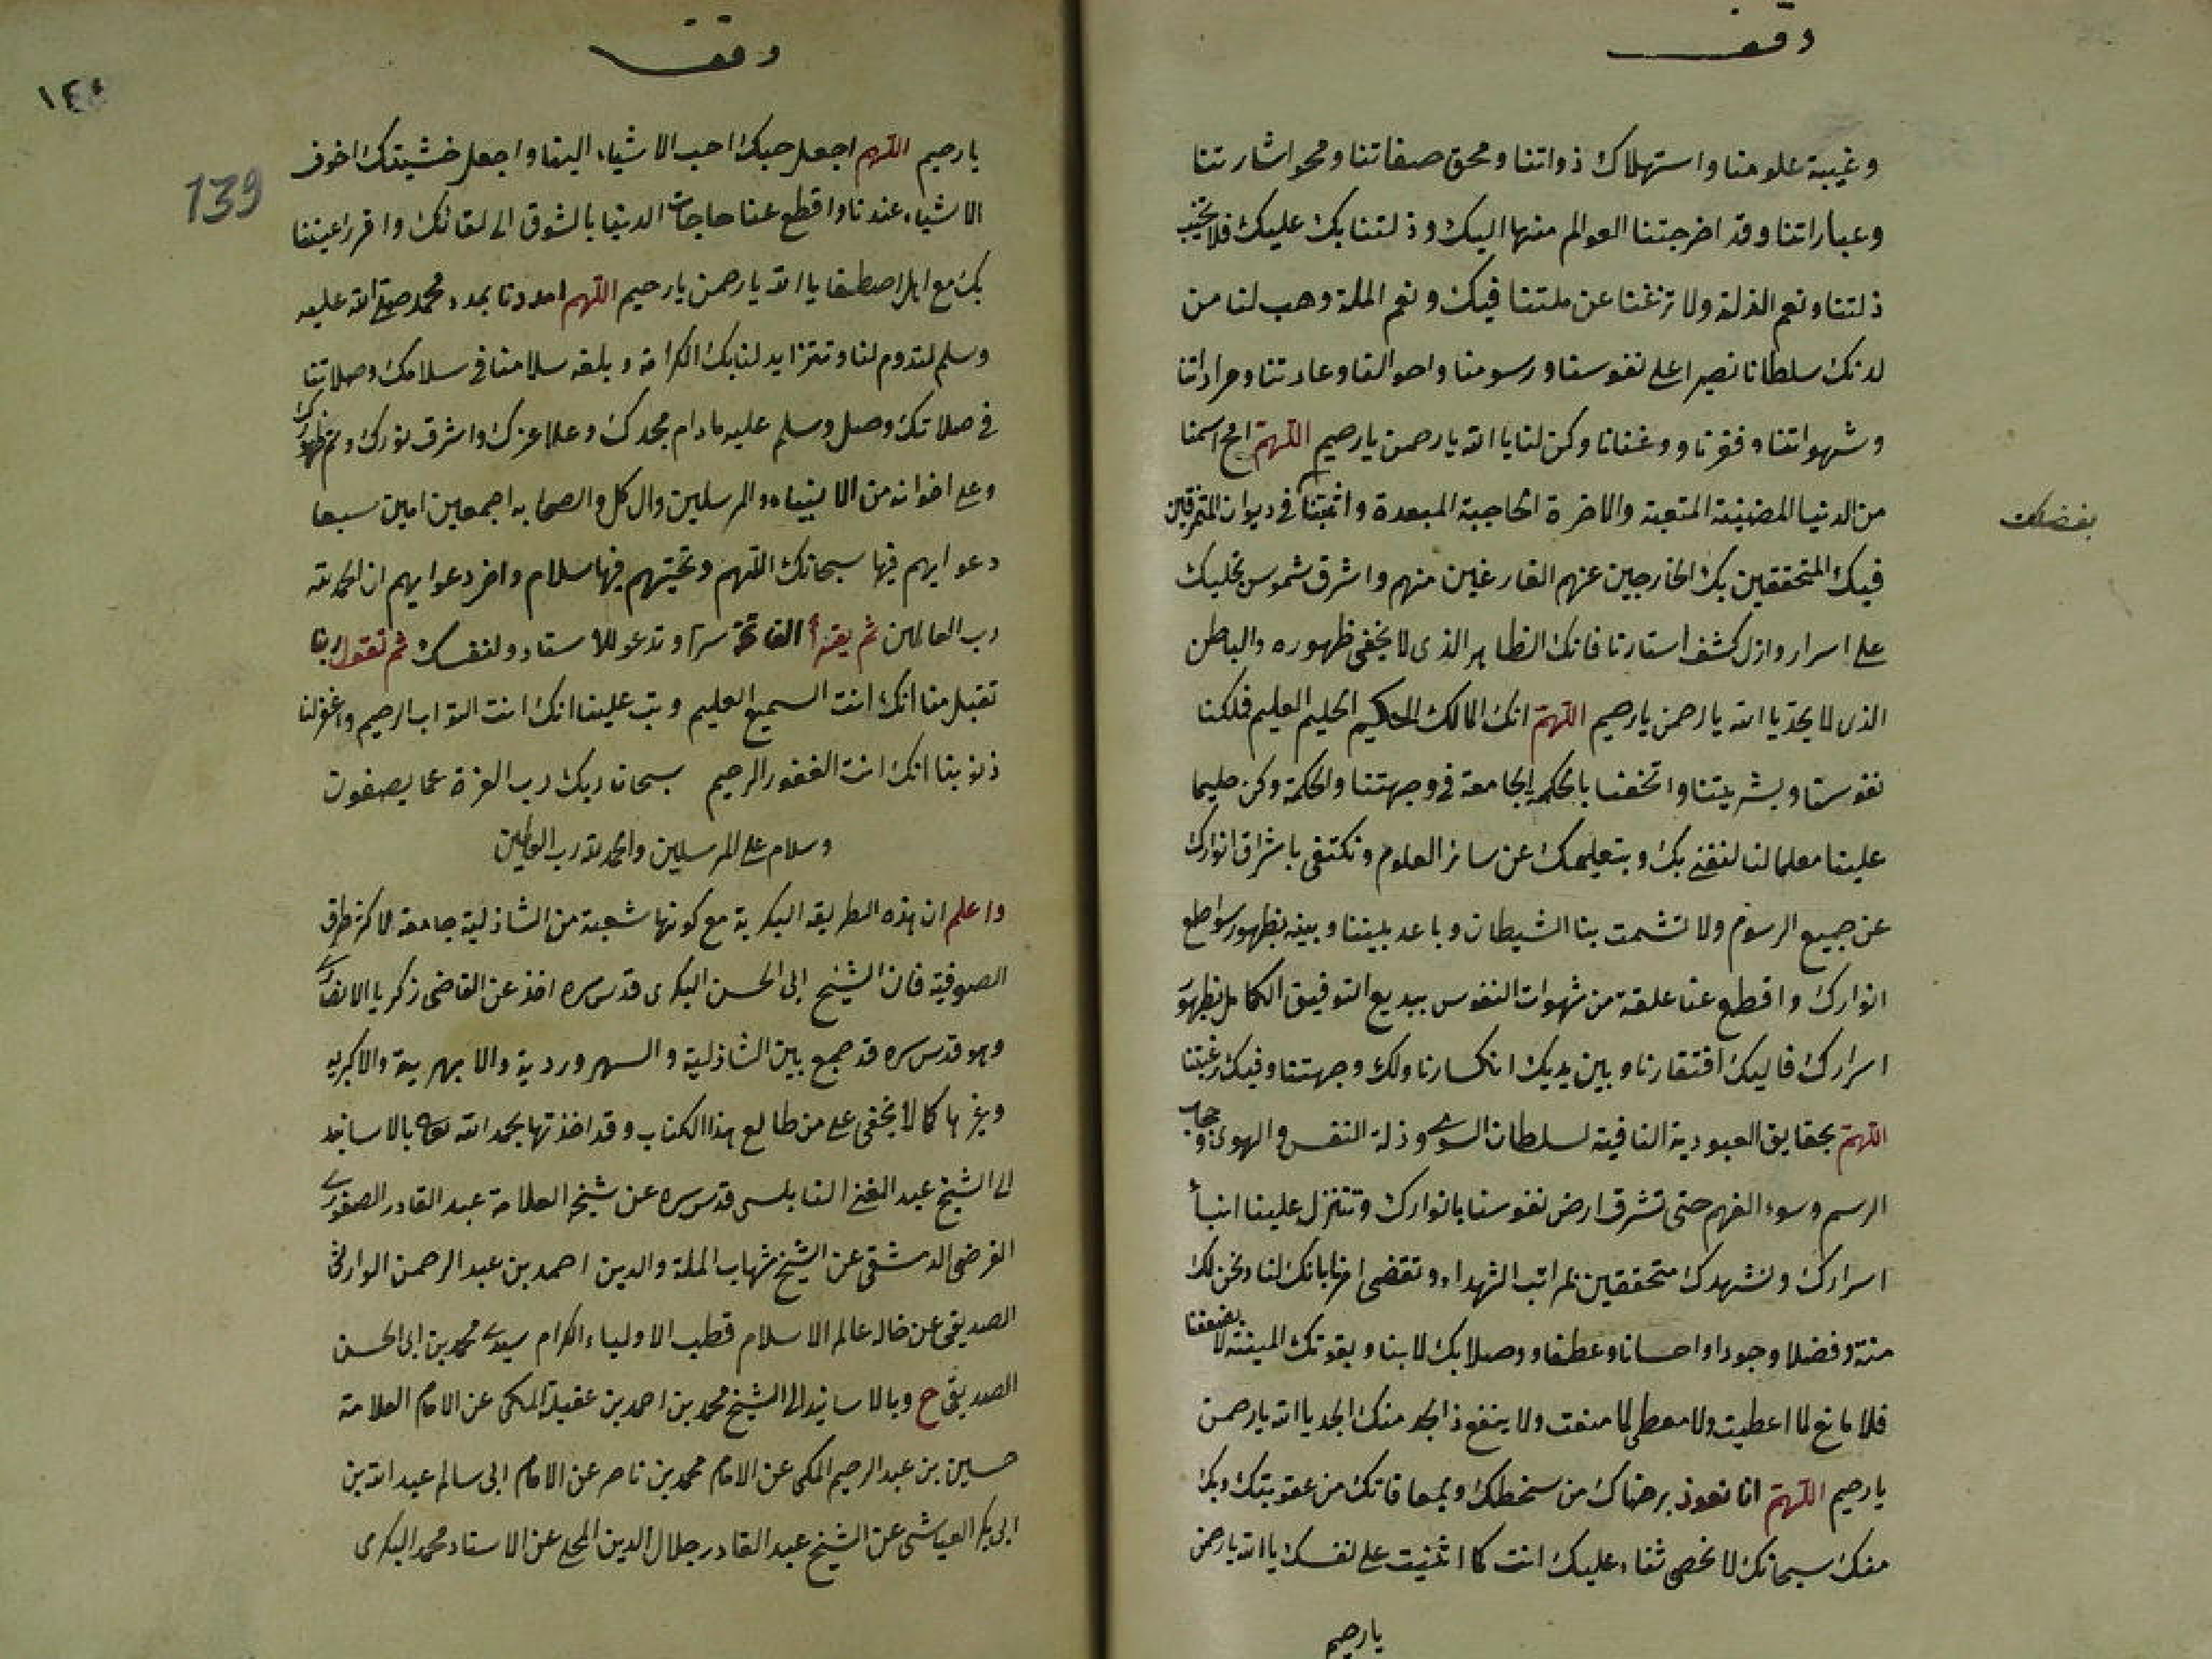 وقف
وغيبة علومنا واستهلاك ذواتنا ومحق صفاتنا ومحو اشارتنا
وعباراتنا وقد اخرجتنا العوالم منها اليك وذلتنا بك عليك فلا تخيب
ذلتنا ونعم الذلة ولا تزغنا عن ملتنا فيك ونعم الملة وهب لنا من
لدنك سلطانا نصيرا على نفوسنا ورسومنا واحوالنا وعادتنا ومراداتنا
وشهواتنا وفقرنا ووغنانا وكن لنا يا الله يا رحمن يا رحيم اللهم امح اسمنا
من الدنيا المضنية المتعبة والاخرة الحاجبة المبعدة واثبتنا في ديوان المتفرقين
بفضلك
فيك المتحققين بك الخارجين عنهم الفارغين منهم واشرق شموس تجليك
على اسرار وازل كشف استارنا فانك الظاهر الذى لا يخفى ظهوره والباطن
الذى لا يحد يا الله يا رحمن يا رحيم اللهم انك المالك الحكيم الحليم العليم فملكنا
نفوسنا وبشريتنا واتحفنا بالحكم الجامعة فى وجهتنا والحكمة وكن حليما
علينا معلما لنا لنغنى بك وبتعليمك عن سائر العلوم ونكتفى باشراق انوارك
عن جميع الرسوم ولا تشمت بنا الشيطان وباعد بيننا وبينه بظهور سواطع
انوارك واقطع عنا علقة من شهوات النفوس ببديع التوفيق الكامل بظهور
اسرارك فاليك افتقارنا وبين يديك انكسارنا ولك وجهتنا وفيك رغبتنا
اللهم بحقايق العبودية النافية لسلطان السوى وذلة النفس والهوى وحجاب
الرسم وسوء الفهم حتى تشرق ارض نفوسنا بانوارك وتتنزل علينا انبأ
اسرارك ونشهدك متحققين بمراتب الشهداء وتقضى امرنا بانك لنا ونحن لك
منة وفضلا وجودا واحسانا وعطفا ووصلا بك لا بنا وبقوتك المتينة لا بضعفنا
فلا مانع لما اعطيت ولا معطى لما منعت ولا ينفع ذ الجد منك الجد يا الله يا رحمن
يا رحيم اللهم انا نعوذ برضاك من سخطك وبمعافاتك من عقوبتك وبك
منك سبحانك لا نحصى ثناء عليك انت كما اثنيت على نفسك يا الله يا رحمن
يا رحيم
وقف
139
يا رحيم اللهم اجعل حبك احب الاشياء الينا واجعل خشيتك اخوف
الاشياء عندنا واقطع عنا حاجات الدنيا بالشوق الى لقائك واقرر اعيننا
بك مع اهل اصطفا يا الله يا رحمن يا رحيم اللهم امددنا بمدد محمد صلى الله عليه
وسلم لتدوم لنا وتتزايد لنا بك الكرامة وبلغه سلامنا فى سلامك وصلاتنا
فى صلاتك وصل وسلم عليه مادام مجدك وعلا عزك واشرق نورك وتم ظهورك
وعلى اخوانه من الانبياء والمرسلين وال كل والصحابه اجمعين امين سبعا
دعوايهم فيها سبحانك اللهم وتحيتهم فيها سلام واخر دعوايهم ان الحمد لله
رب العالمين ثم يقرأ الفاتحة سرا وتدعو للاستاد ولنفسك ثم تقول ربنا
تقبل منا انك انت السميع العليم وتب علينا انك انت التواب الرحيم واغفر لنا
ذنوبنا انك انت الغفور الرحيم سبحان ربك رب العزة عما يصفون
وسلام على المرسلين والحمد لله رب العالمين
واعلم ان هذه الطريقه البكرية مع كونها شعبة من الشاذلية جامعة لاكثر طرق
الصوفية فان الشيخ ابى الحسن البكرى قدس سره اخذ عن القاضى زكريا الانصارى
وهو قدس سره قد جمع بين الشاذلية والسهروردية والابهرية والاكبريه
وغيرها كما لا يخفى على من طالع هذا الكتاب وقد اخذتها بحمد الله تعالى بالاسانيد
الى الشيخ عبد الغنى النابلسى قدس سره عن شيخه العلامة عبد القادر الصفورى
الفرضى الدمشقى عن الشيخ شهاب الملة والدين احمد بن عبد الرحمن الوارثى
الصديقى عن خاله عالم الاسلام قطب الاولياء الكرام سيدى محمد بن ابى الحسن
الصديقى ح وبالاسانيد الى الشيخ محمد بن احمد بن عقيلة المكى عن الامام العلامة
حسين بن عبد الرحيم المكى عن الامام محمد بن ناصر عن الامام ابى سالم عبد الله بن
ابى بكر العياشى عن الشيخ عبد القادر جلال الدين المحلى عن الاستاد محمد البكرى